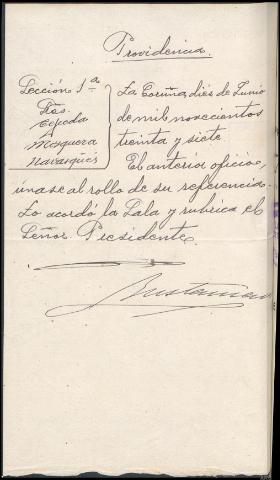 Providencia.
Sección 1ª
Sres.
Cepeda
Mosquera
Navarqués
La Coruña, diés de Junio
de mil novecientos
treinta y siete.
El anterior oficio,
únase al rollo de su referencia.
Lo acordó la Sala y rubrica el
Señor Presidente.